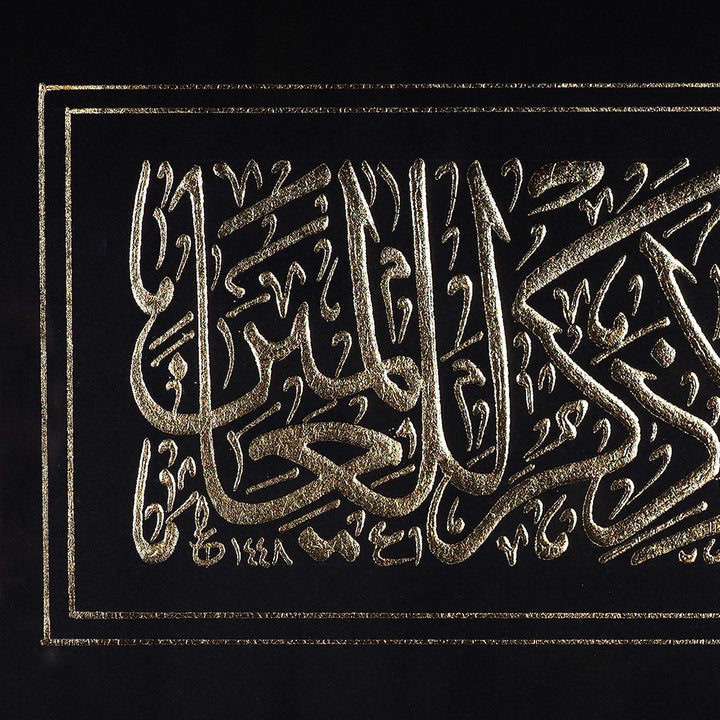 ذكر للعالمين
١٤٤٨